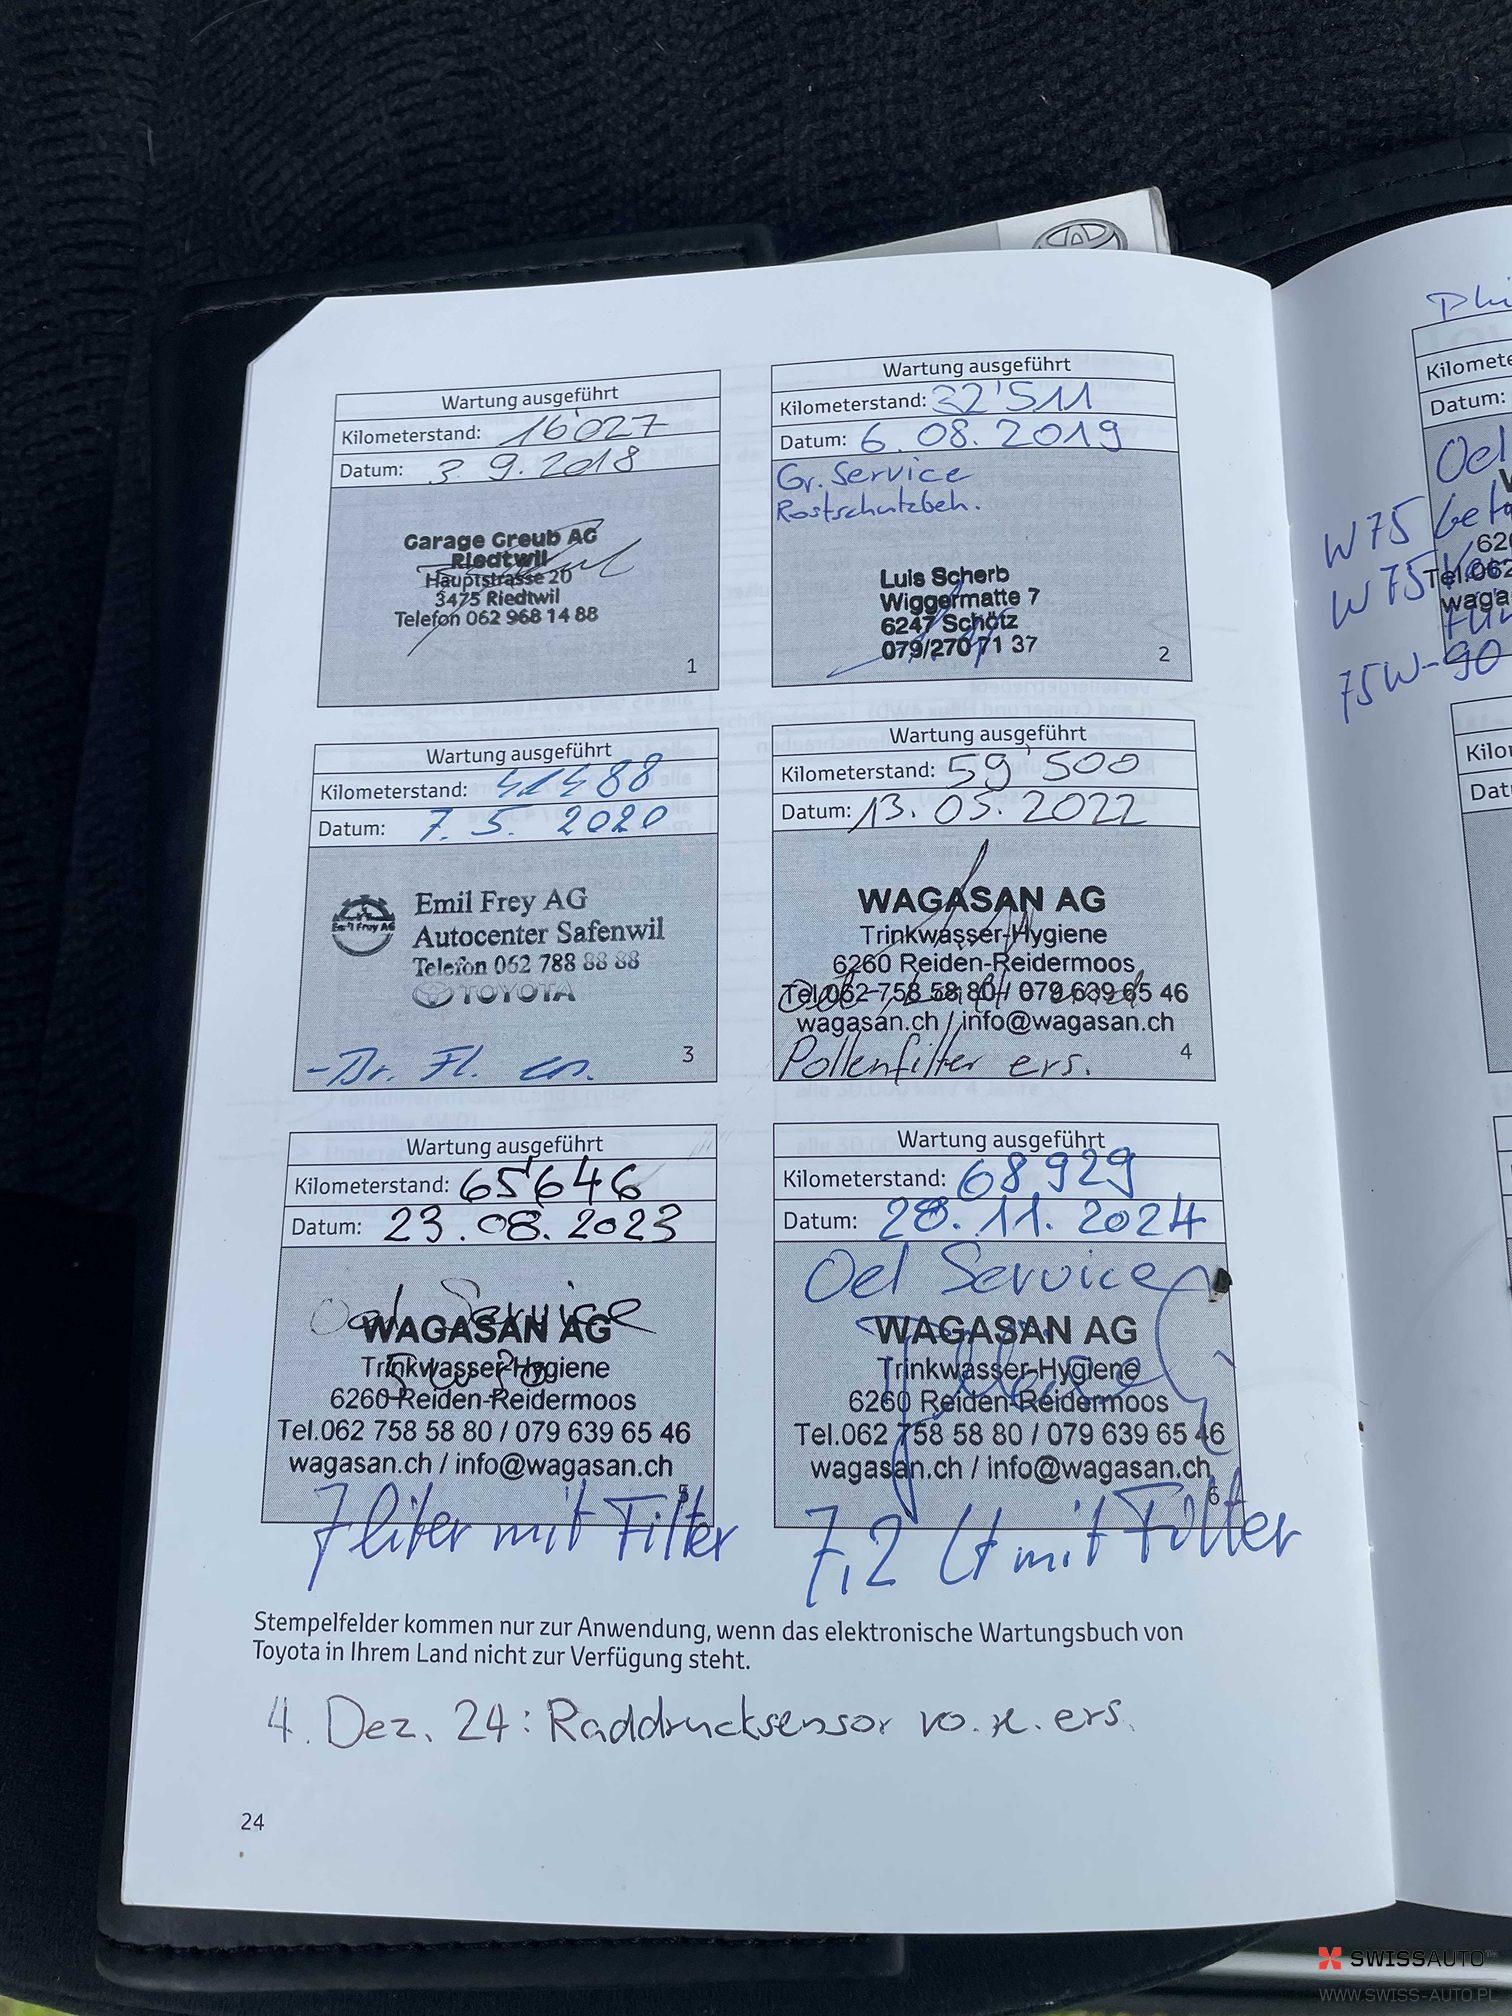 Wartung ausgeführt
Kilometerstand: 16'027
Datum: 3. 9. 2018
Garage Greub AG
Riedtwil
Hauptstrasse 20
3475 Riedtwil
Telefon 062 968 14 88
1
Wartung ausgeführt
Kilometerstand: 32'511
Datum: 6. 08. 2019
Gr. Service
Rostschutzbeh.
Luis Scherb
Wiggermatte 7
6247 Schötz
079/270 71 37
2
Wartung ausgeführt
Kilometerstand: 41488
Datum: 7. 5. 2020
Emil Frey AG
Emil Frey AG
Autocenter Safenwil
Telefon 062 788 88 88
TOYOTA
- Br. Fl. en.
3
Wartung ausgeführt
Kilometerstand: 59'500
Datum: 13. 05. 2022
WAGASAN AG
Trinkwasser-Hygiene
6260 Reiden-Reidermoos
Tel.062 758 58 80 / 079 639 65 46
wagasan.ch / info@wagasan.ch
Pollenfilter ers.
4
Wartung ausgeführt
Kilometerstand: 65'646
Datum: 23. 08. 2023
Oel Service
WAGASAN AG
Trinkwasser-Hygiene
5W30
6260 Reiden-Reidermoos
Tel.062 758 58 80 / 079 639 65 46
wagasan.ch / info@wagasan.ch
5
7 liter mit Filter
Wartung ausgeführt
Kilometerstand: 68929
Datum: 28. 11. 2024
Oel Service
WAGASAN AG
Trinkwasser-Hygiene
6260 Reiden-Reidermoos
Tel.062 758 58 80 / 079 639 65 46
wagasan.ch / info@wagasan.ch
6
7,2 lt mit Filter
Stempelfelder kommen nur zur Anwendung, wenn das elektronische Wartungsbuch von
Toyota in Ihrem Land nicht zur Verfügung steht.
4. Dez. 24: Raddrucksensor vo. re. ers.
24
Datum:
Oel
W75
W75
Tel.062
75W-90
SWISSAUTO
WWW.SWISS-AUTO.PL